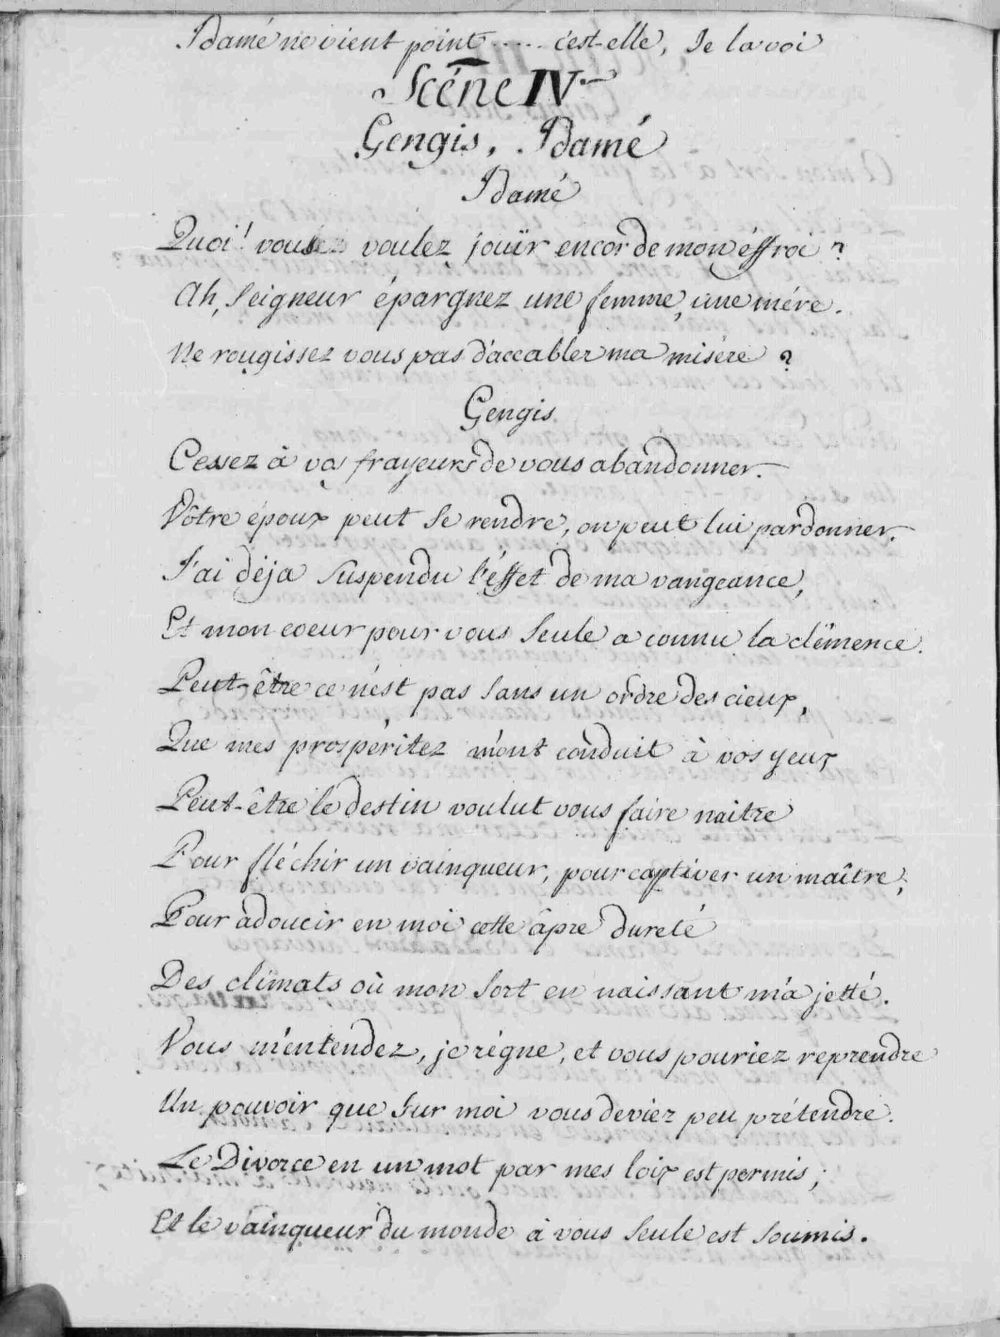 Idamé ne vient point..... c'est-elle, Je la voi
Scéne IV
Gengis, Idamé
Idamé
Quoi! vous voulez joüir encor de mon effroi?
Ah, Seigneur épargnez une femme, une mére.
Ne rougissez vous pas d'accabler ma misére?
Gengis
Cessez à vos frayeurs de vous abandonner.
Vôtre époux peut se rendre, on peut lui pardonner.
J'ai déja suspendu l'éffet de ma vangeance,
Et mon coeur pour vous seule a connu la clémence.
Peut-être ce n'est pas sans un ordre des cieux,
Que mes prospéritez m'ont conduit à vos yeux
Peut-être le destin voulut vous faire naître
Pour fléchir un vainqueur, pour captiver un maître;
Pour adoucir en moi cette âpre dureté
Des climats où mon sort en naissant m'a jetté.
Vous m'entendez, je régne, et vous pouriez reprendre
Un pouvoir que sur moi vous deviez peu prétendre.
Le Divorce en un mot par mes loix est permis;
Et le vainqueur du monde à vous seule est soumis.